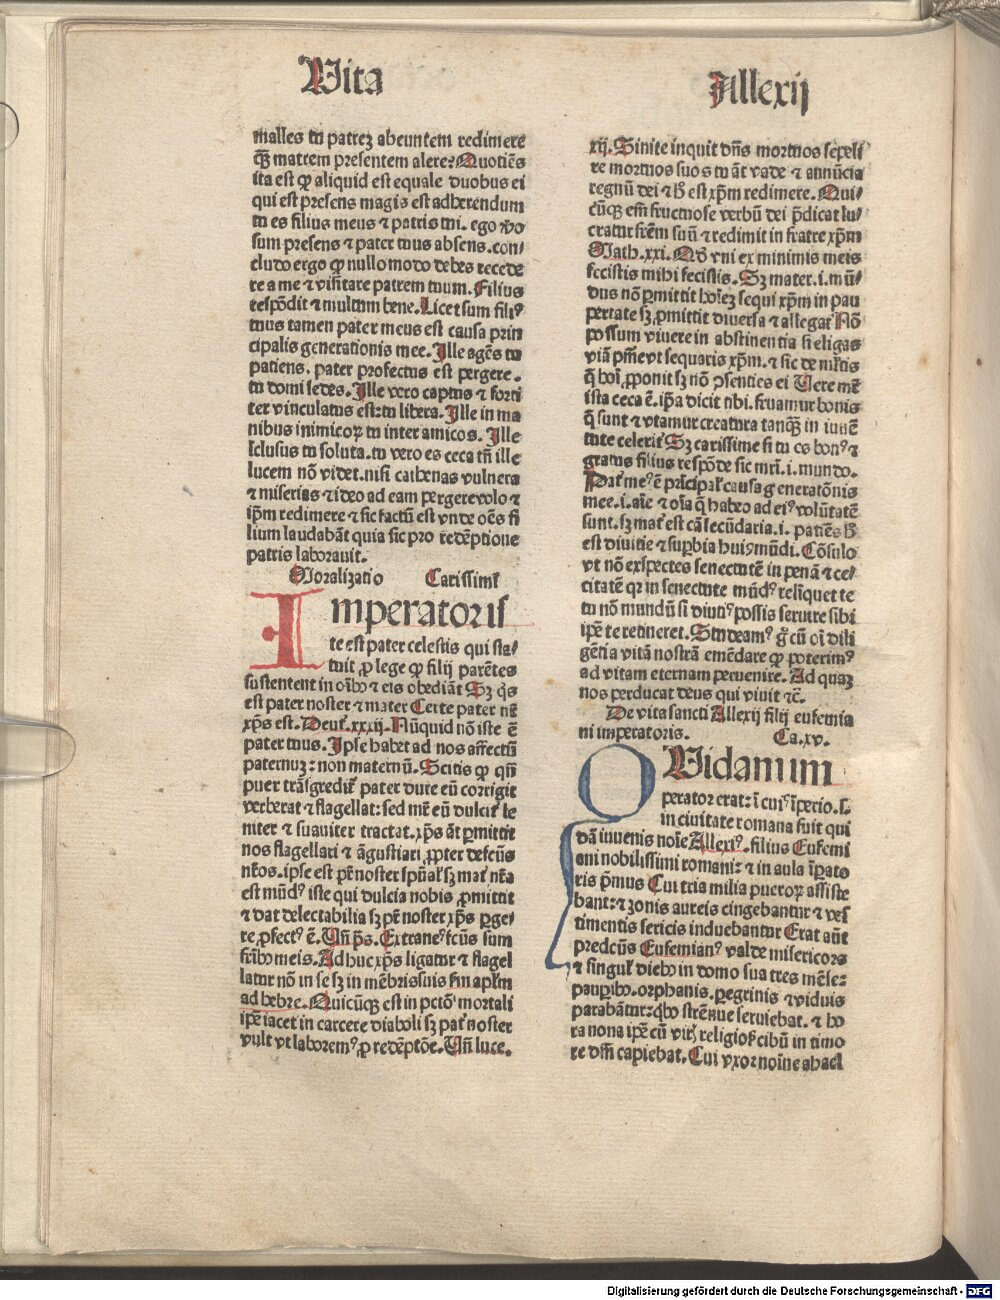 Vita
Allexij
malles tu patreꝫ abeuntem redimere
qꝫ̃ matrem presentem alere: Quotiẽs
ita est ꝙ aliquid est equale duobus ei
qui est presens magis est adherendum
tu es filius meus ⁊ patris tui. ego vͦo
sum presens ⁊ pater tuus absens. con⸗
cludo ergo ꝙ nullo modo debes recede
re a me ⁊ visitare patrem tuum. Filius
respõdit ⁊ multum bene. Licet sum filiꝰ
tuus tamen pater meus est causa prin
cipalis generationis mee. Ille agẽs tu
patiens. pater profectus est pergere.
tu domi sedes. Ille vero captus ⁊ forti
ter vinculatus est: tu libera. Ille in ma
nibus inimicoꝝ tu inter amicos. Ille
īclusus tu soluta. tu vero es ceca tñ ille
lucem nõ videt. nisi cathenas vulnera
⁊ miserias ⁊ ideo ad eam pergere volo ⁊
ip̃m redimere ⁊ sic factũ est vnde oẽs fi
lium laudabãt quia sic pro redẽptione
patris laborauit.
Moralizatio Carissimi
Imperator is
te est pater celestis qui sta⸗
tuit ꝓ lege ꝙ filij parẽtes
sustentent in oĩbꝰ ⁊ eis obediãt Sꝫ q̃s
est pater noster ⁊ mater Certe pater nr̃
xp̃s est. Deut̃. xxxij. Nũquid nõ iste ẽ
pater tuus. Ipse habet ad nos affectũ
paternuꝫ: non maternũ. Scitis ꝙ qñ
puer trãsgredit̃ pater dure eũ corrigit
verberat ⁊ flagellat: sed mr̃ eũ dulcit̃ le
niter ⁊ suauiter tractat. xp̃s aũt ꝑmittit
nos flagellari ⁊ ãgustiari ꝓpter defectũs
nr̃os. ipse est pr̃ noster spũal̃ sꝫ mat̃ nr̃a
est mũdꝰ iste qui dulcia nobis ꝓmittit
⁊ dat delectabilia sꝫ pr̃ noster xp̃s ꝑge⸗
re ꝓfectꝰ ẽ. Vñ ps̃. Extraneꝰ fcũs sum
fr̃ibꝰ meis. Adhuc xp̃s ligatur ⁊ flagel
latur nõ in se sꝫ in mẽbris suis fm̃ apl̃m
ad hebre. Quicũqꝫ est in pctõ mortali
ip̃e iacet in carcere diaboli sꝫ pat̃ noster
vult vt laboremꝰ ꝓ redẽptõe. Vñ luce.
xij. Sinite inquit dñs mortuos sepeli
re mortuos suos tu aũt vade ⁊ annũcia
regnũ dei ⁊ h̃ est xp̃m redimere. Qui⸗
cũqꝫ em̃ fructuose verbũ dei p̃dicat lu⸗
cratur fr̃em suũ ⁊ redimit in fratre xp̃m
Math. xxi. Qđ vni ex minimis meis
fecistis mihi fecistis. Sꝫ mater .i. mũ⸗
dus nõ ꝑmittit hoĩeꝫ sequi xp̃m in pau
pertate sꝫ ꝓmittit diuersa ⁊ allegat Nõ
possum viuere in abstinentia si eligas
viã
ꝙ
ista ceca ẽ. ip̃a dicit tibi. fruamur bonis
q̃ sunt ⁊ vtamur creatura tanqꝫ̃ in iuuẽ
tute celerit̃ Sꝫ carissime si tu es bonꝰ ⁊
gratus filius respõde sic mr̃i .i. mundo.
Pat̃ meꝰ ẽ prĩcipal̃ causa generatõnis
mee .i. aĩe ⁊ oĩa q̃ habeo ad eiꝰ volũtatẽ
sunt. sꝫ mat̃ est cã secũdaria .i. patiẽs h̃
est diuitie ⁊ suꝑbia huiꝰ mũdi. Cõsulo
vt nõ exspectes senectutẽ in penã ⁊ ce⸗
citatẽ qꝛ in senectute mũdꝰ relĩquet te
tu nõ mundũ si diutiꝰ possis seruire sibi
ip̃e te retineret. Studeamꝰ g̃ cũ oĩ dili
gẽtia vitã nostrã emẽdare ꝙ poterimꝰ
ad vitam eternam peruenire. Ad quaꝫ
nos perducat deus qui viuit ⁊c̃.
De vita sancti Allexij filij eufemia
ni imperatoris. Ca. xv.
OVidam im
perator erat: ĩ cuiꝰ ĩperio. s.
in ciuitate romana fuit qui
dã iuuenis noĩe Allexiꝰ. filius Eufemi
ani nobilissimi romani: ⁊ in aula ĩpato
ris p̃mus Cui tria milia pueroꝝ assiste
bant: ⁊ zonis aureis cingebantur ⁊ ves
timentis sericis induebantur Erat aũt
predcũs Eufemianꝰ valde misericors
⁊ singul̃ diebꝰ in domo sua tres mẽse:
pauꝑibꝰ. orphanis. ꝑegrinis ⁊ viduis
parabãtur: qͥbꝰ strẽnue seruiebat. ⁊ ho
ra nona ip̃e cũ virꝭ religiosꝭ cibũ in timo
re dñi capiebat. Cui vxor noĩne abael
Digitalisierung gefördert durch die Deutsche Forschungsgemeinschaft - DFG